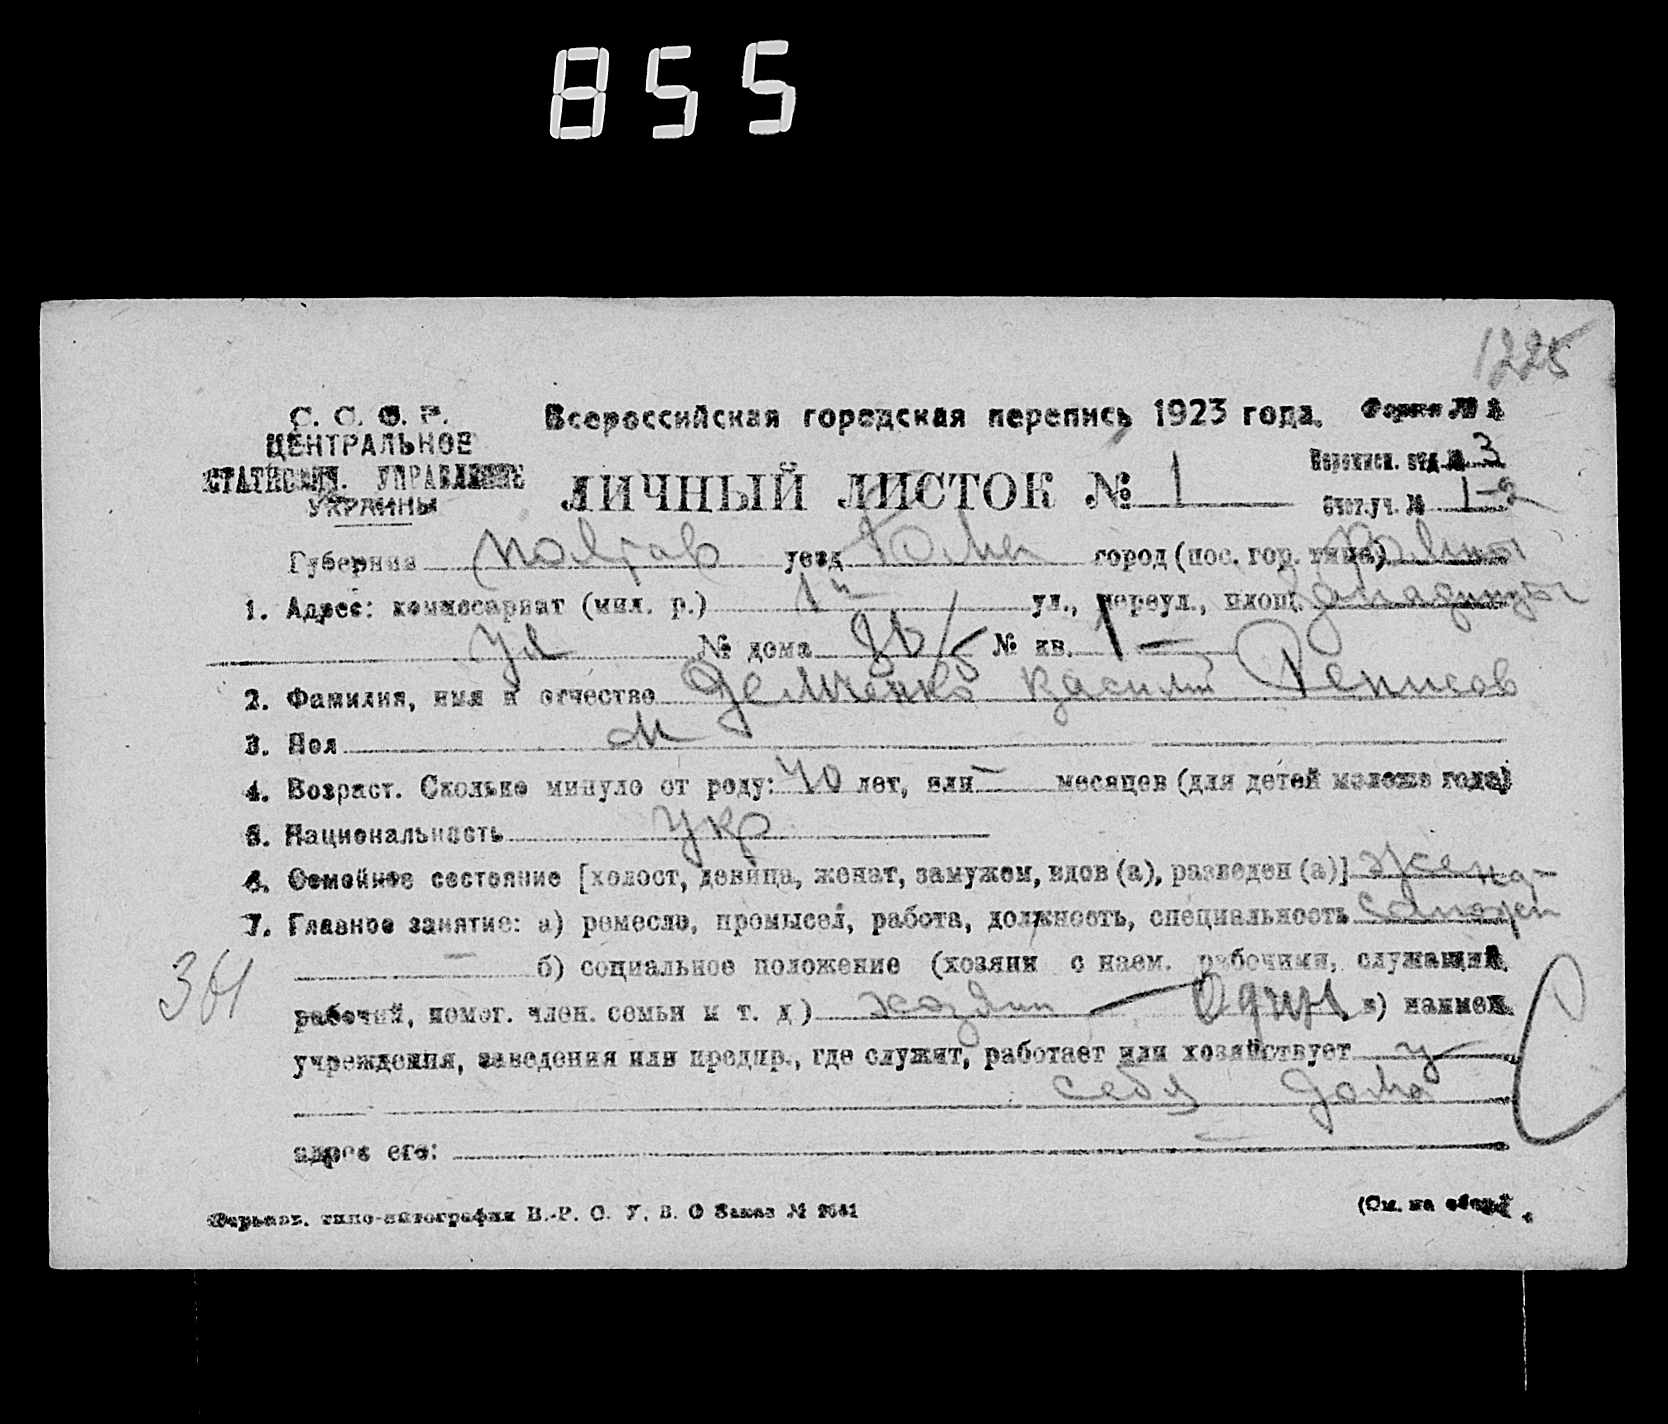 855
1225
С. С. С. Р.
ЦЕНТРАЛЬНОЕ
СТАТИСТИЧ. УПРАВЛЕНИЕ
УКРАИНЫ
Всероссийская городская перепись 1923 года.
Форма № 1
Переписн. отд. № 3
ЛИЧНЫЙ ЛИСТОК № 1
Счет. уч. № 1-2
Губерния Полтав уезд Ромен город (пос. гор. типа) Ромны
1. Адрес: комиссариат (мил. р.) 1й ул., переул., площ.
ул № дома № кв. 1 —
2. Фамилия, имя и отчество Демченко Василий Денисов
3. Пол М
4. Возраст. Сколько минуло от роду: 40 лет, или — месяцев (для детей моложе года)
5. Национальность Укр
6. Семейное состояние [холост, девица, женат, замужем, вдов (а), разведен (а)]
7. Главное занятие: а) ремесло, промысел, работа, должность, специальность Сапожн
— б) социальное положение (хозяин с наем. рабочими, служащий,
361
рабочий, помог. член. семьи и т. д) хозяин — Один в) наимен.
учреждения, заведения или предпр., где служит, работает или хозяйствует у
себя дома
адрес его:
(См. на обор.)